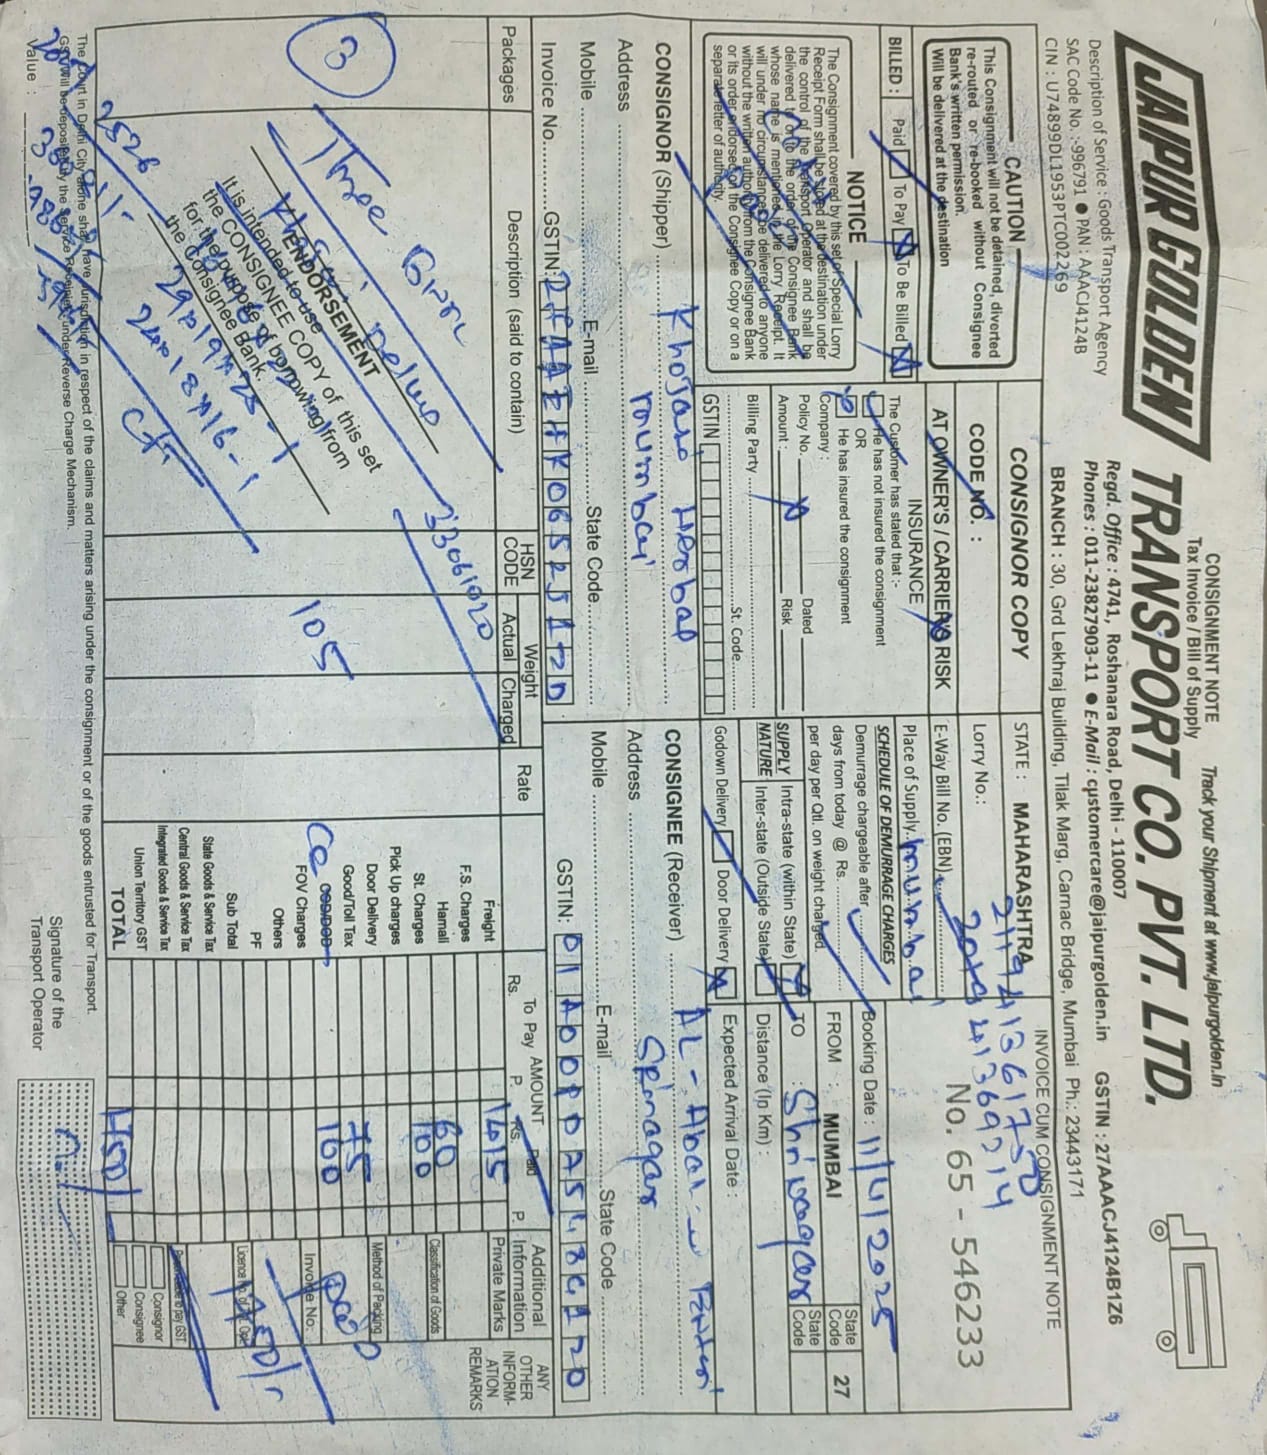 CONSIGNMENT NOTE
Tax Invoice / Bill of Supply
Track your Shipment at www.jaipurgolden.in
JAIPUR GOLDEN TRANSPORT CO. PVT. LTD.
Regd. Office : 4741, Roshanara Road, Delhi - 110007
Phones : 011-23827903-11 ● E-Mail : customercare@jaipurgolden.in GSTIN : 27AAACJ4124B1Z6
Description of Service : Goods Transport Agency
SAC Code No. :-996791 ● PAN : AAACJ4124B
CIN : U74899DL1953PTC002269
BRANCH : 30, Grd Lekhraj Building, Tilak Marg, Carnac Bridge, Mumbai Ph.: 23443171
CAUTION
This Consignment will not be detained, diverted
re-routed or re-booked without Consignee
Bank's written permission.
Will be delivered at the destination
BILLED : Paid To Pay To Be Billed
NOTICE
The Consignment covered by this set of Special Lorry
Receipt Form shall be stored at the destination under
the control of the Transport Operator and shall be
delivered to or to the order of the Consignee Bank
whose name is mentioned in the Lorry Receipt. It
will under no circumstances be delivered to anyone
without the written authority from the Consignee Bank
or its order endorsed on the Consignee Copy or on a
separate letter of authority.
CONSIGNOR COPY
CODE NO. :
AT OWNER'S / CARRIER'S RISK
INSURANCE
The Customer has stated that :-
He has not insured the consignment
OR
He has insured the consignment
Company :
Policy No. Dated
Amount : Risk
Billing Party
St. Code
GSTIN
STATE : MAHARASHTRA
INVOICE CUM CONSIGNMENT NOTE
Lorry No.:
No. 65 - 546233
E-Way Bill No. (EBN)
Place of Supply. mumbai
SCHEDULE OF DEMURRAGE CHARGES
Demurrage chargeable after
days from today @ Rs.
per day per Qtl. on weight charged.
SUPPLY Intra-state (within State)
NATURE: Inter-state (Outside State)
Godown Delivery Door Delivery
Booking Date : 11/4/2025
FROM : MUMBAI State Code 27
TO : Shrinagar State Code
Distance (In Km) :
Expected Arrival Date :
CONSIGNOR (Shipper) Khojati Herbal
Address mumbai
Mobile E-mail State Code
Invoice No. GSTIN:
CONSIGNEE (Receiver)
Address Srinagar
Mobile E-mail State Code
GSTIN:
Packages Description (said to contain) HSN CODE Weight Actual Charged Rate AMOUNT To Pay Rs. P. Paid Rs. P. Additional Information Private Marks ANY OTHER INFORM-ATION REMARKS
3
Three
33061020
105
ENDORSEMENT
It is intended to use
the CONSIGNEE COPY of this set
for the purpose of borrowing from
the Consignee Bank.
Freight 1415
F.S. Charges
Hamali 60
St. Charges 100
Pick Up charges
Door Delivery
Good/Toll Tax 75
COD/DOD 100
FOV Charges
Others
PF
Sub Total
State Goods & Service Tax
Central Goods & Service Tax
Integrated Goods & Service Tax
Union Territory GST
TOTAL
Classification of Goods
Method of Packing
Invoice No:
Person liable to pay GST
Consignor
Consignee
Other
The Court in Delhi City alone shall have jurisdiction in respect of the claims and matters arising under the consignment or of the goods entrusted for Transport.
GST will be deposited by the Service Recipient under Reverse Charge Mechanism.
Value :
Signature of the
Transport Operator